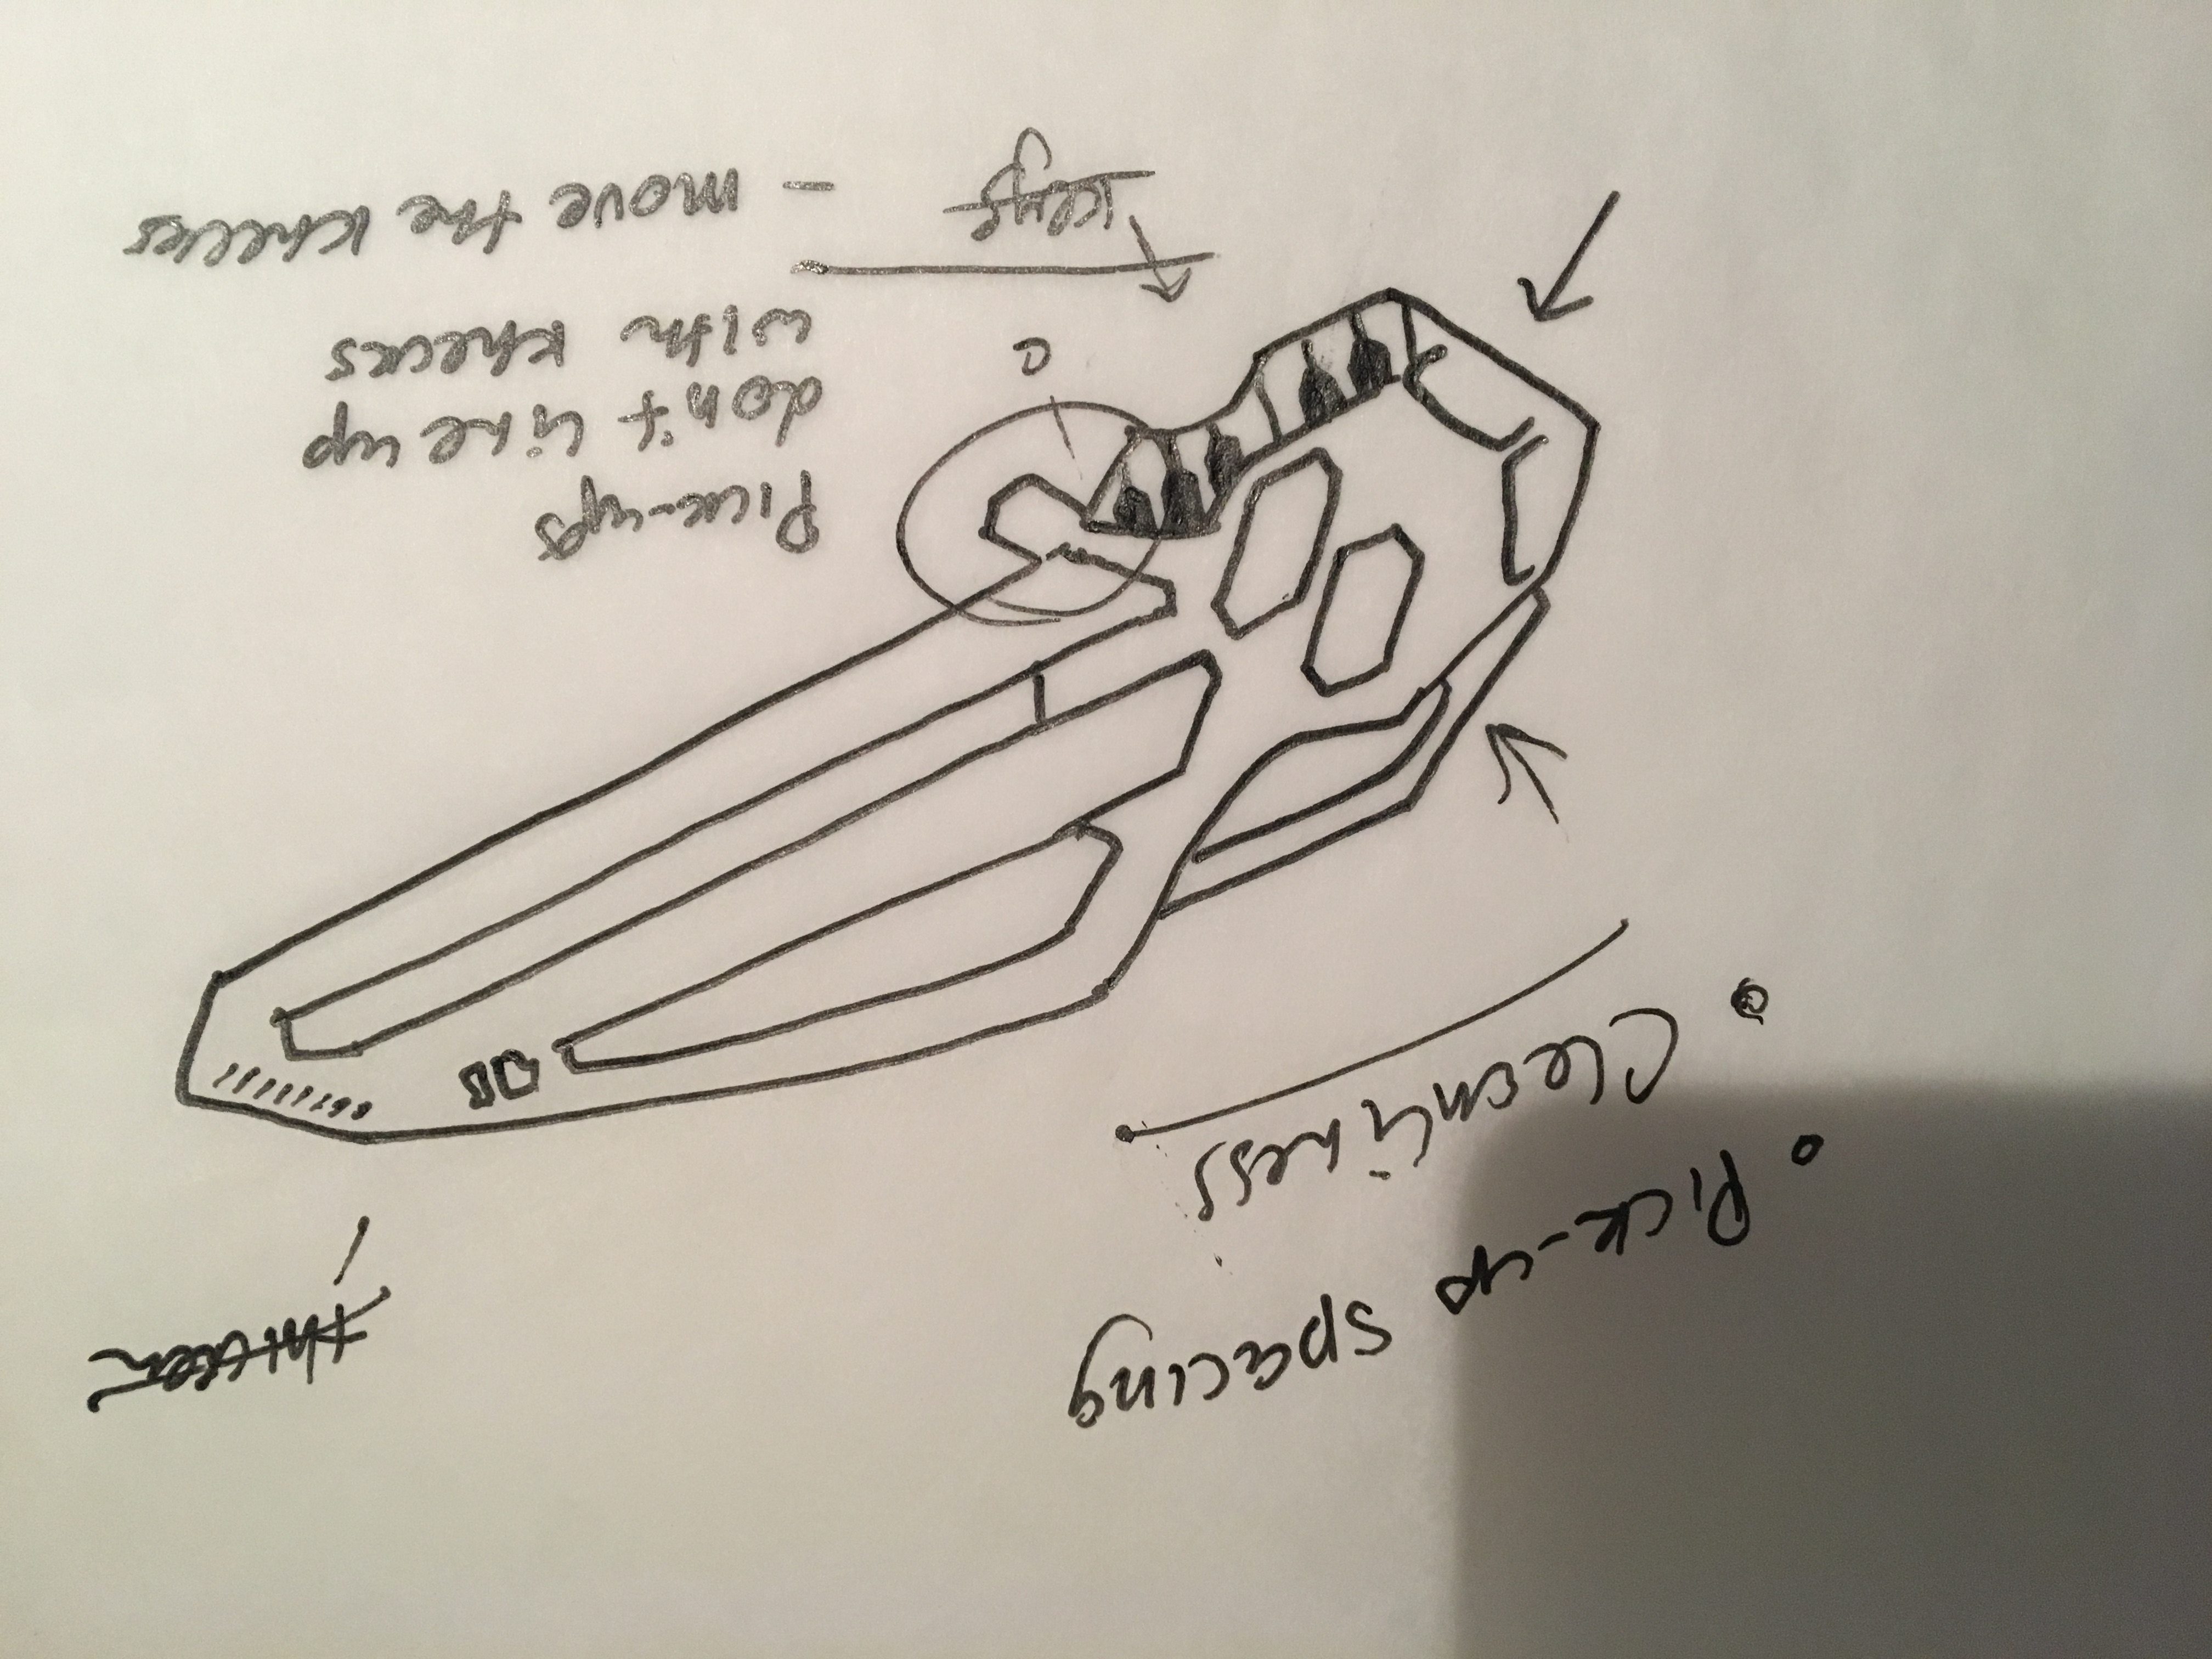 • Pick-up spacing
• Cleanliness
Pick-ups
don't line up
with knecks
C
Keys
- move the knecks